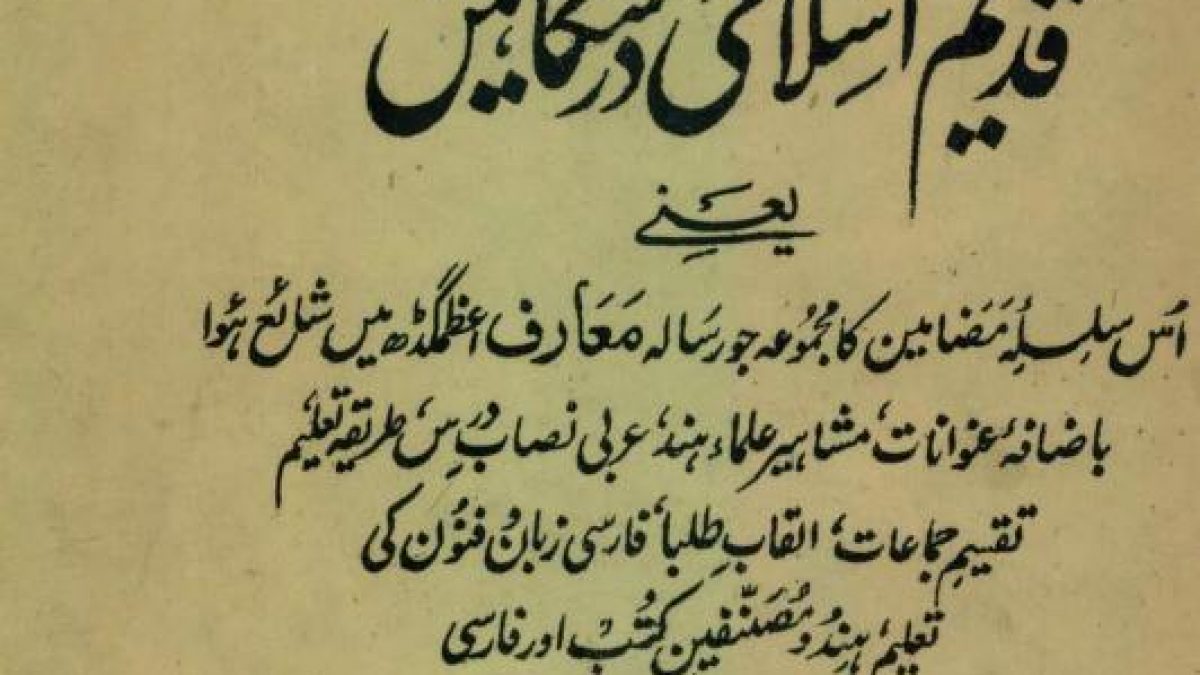 قدیم اسلامی درسگاہیں
یعنے
اُس سلسلۂ مَضامین کا مجموُعہ جو رسَالہ مَعَارف اعظمگڈھ میں شائع ہُوا
باضافۂ عنوانات، مشاہیر علماء ہند، عربی نصاب درس، طریقہ تعلیم
تقسیمِ جماعات، القابِ طلبا، فارسی زبان و فنوُن کی
تعلیم، ہِندُو مُصَنّفین کُتبْ اور فارسی